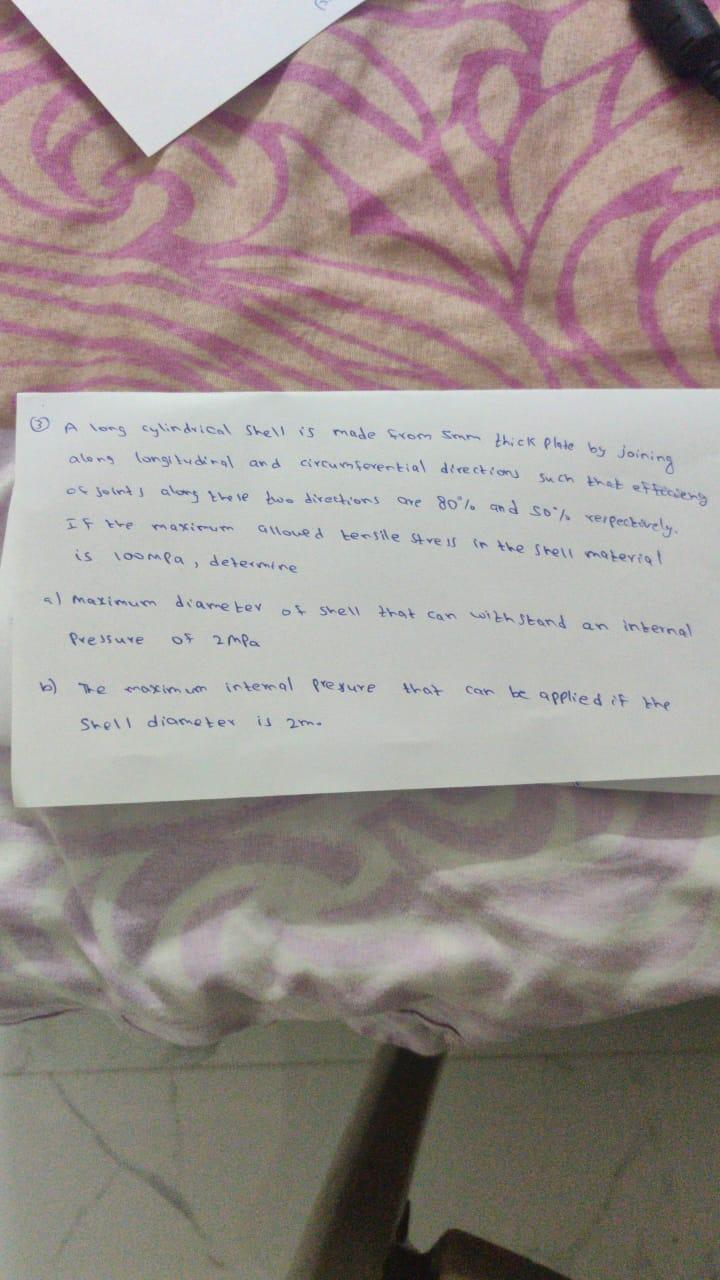 ③ A long cylindrical shell is made from 5mm thick plate by joining
along longitudinal and circumferential directions such that efficiency
of joints along these two directions are 80% and 50% respectively.
If the maximum allowed tensile stress in the shell material
is 100mpa, determine
a) maximum diameter of shell that can withstand an internal
Pressure of 2mpa
b) The maximum internal presure that can be applied if the
Shell diameter is 2m.